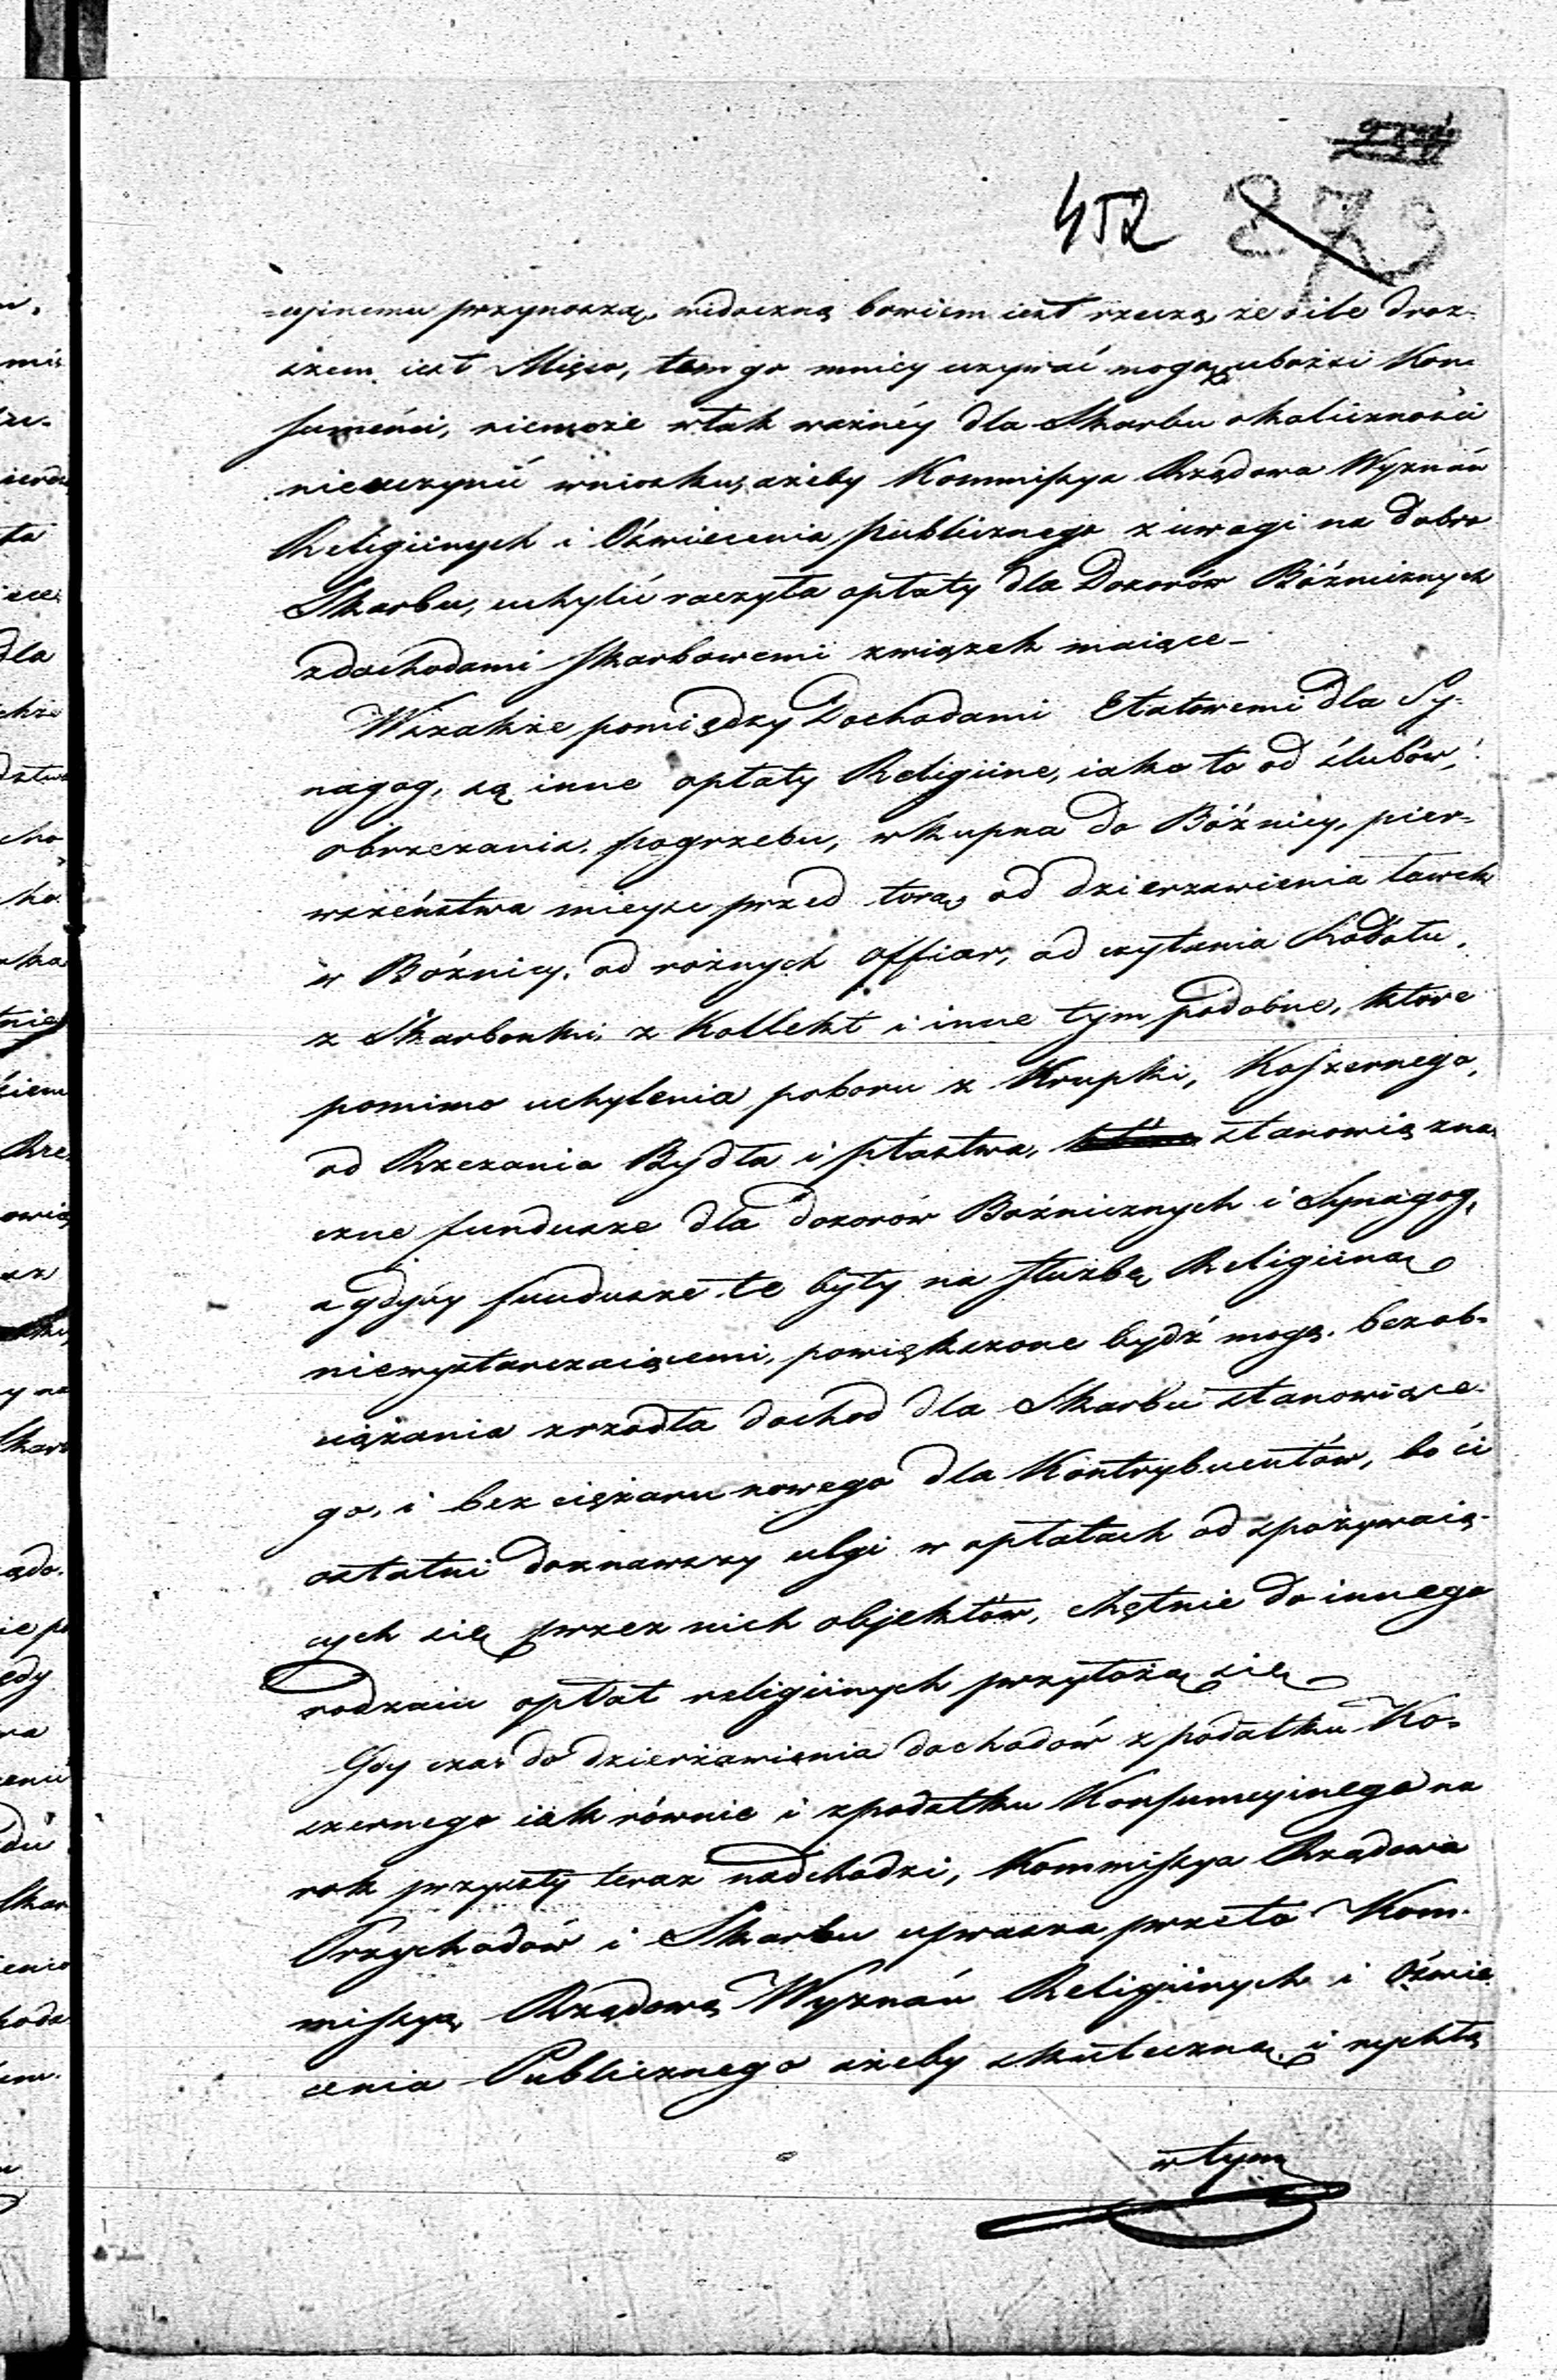 452 279
=cyinemu przynoszą, widoczną bowiem iest rzeczą że o ile droż-
szem iest Mięso, tem go mniey używać mogą ubożsi Kon-
sumenci, niemoże w tak ważnéy dla Skarbu okoliczności
nieuczynić wniosku, ażeby Kommissya Rządowa Wyznań
Religiinych i Oświecenia Publicznego z uwagi na dobro
Skarbu, uchylić raczyła opłaty dla Dozorów Bóżnicznych
z dochodami skarbowemi związek maiące –
Wszakże pomiędzy Dochodami Etatowemi dla Sy-
nagog, są inne opłaty Religiine, iako to od ślubów,
obrzezania, pogrzebu, wkupna do Bóżnicy, pier-
wszeństwa mieysc przed torą, od dzierzawienia ławek
w Bóżnicy, od rożnych offiar, od czytania
z Skarbonki, z Kollekt i inne tym podobne, które
pomimo uchylenia poboru z Krupki, Koszernego,
od Rzezania Bydła i ptastwa, stanowią zna-
czne fundusze dla dozorów Bóżnicznych i Synagog,
a gdyby fundusze te były na służbę Religiiną
niewystarczaiącemi, powiększone bydź mogą, bez ob-
ciążania zrzodła dochod dla Skarbu stanowiące-
go, i bez ciężaru nowego dla Kontrybuentów, bo ci
ostatni doznawszy ulgi w opłatach od spożywaią-
cych się przez nich objektów, chętnie do innego
rodzaiu opłat religiinych przyłożą się
Gdy czas do dzierżawienia dochodów z podatku Ko-
szernego iak równie i z podatku Konsumcyinego na
rok przyszły teraz nadchodzi, Kommissya Rządowa
Przychodów i Skarbu uprasza przeto Kom-
missyą Rządową Wyznań Religiinych i Oświe-
cenia Publicznego ażeby skuteczną i rychłą
w tym